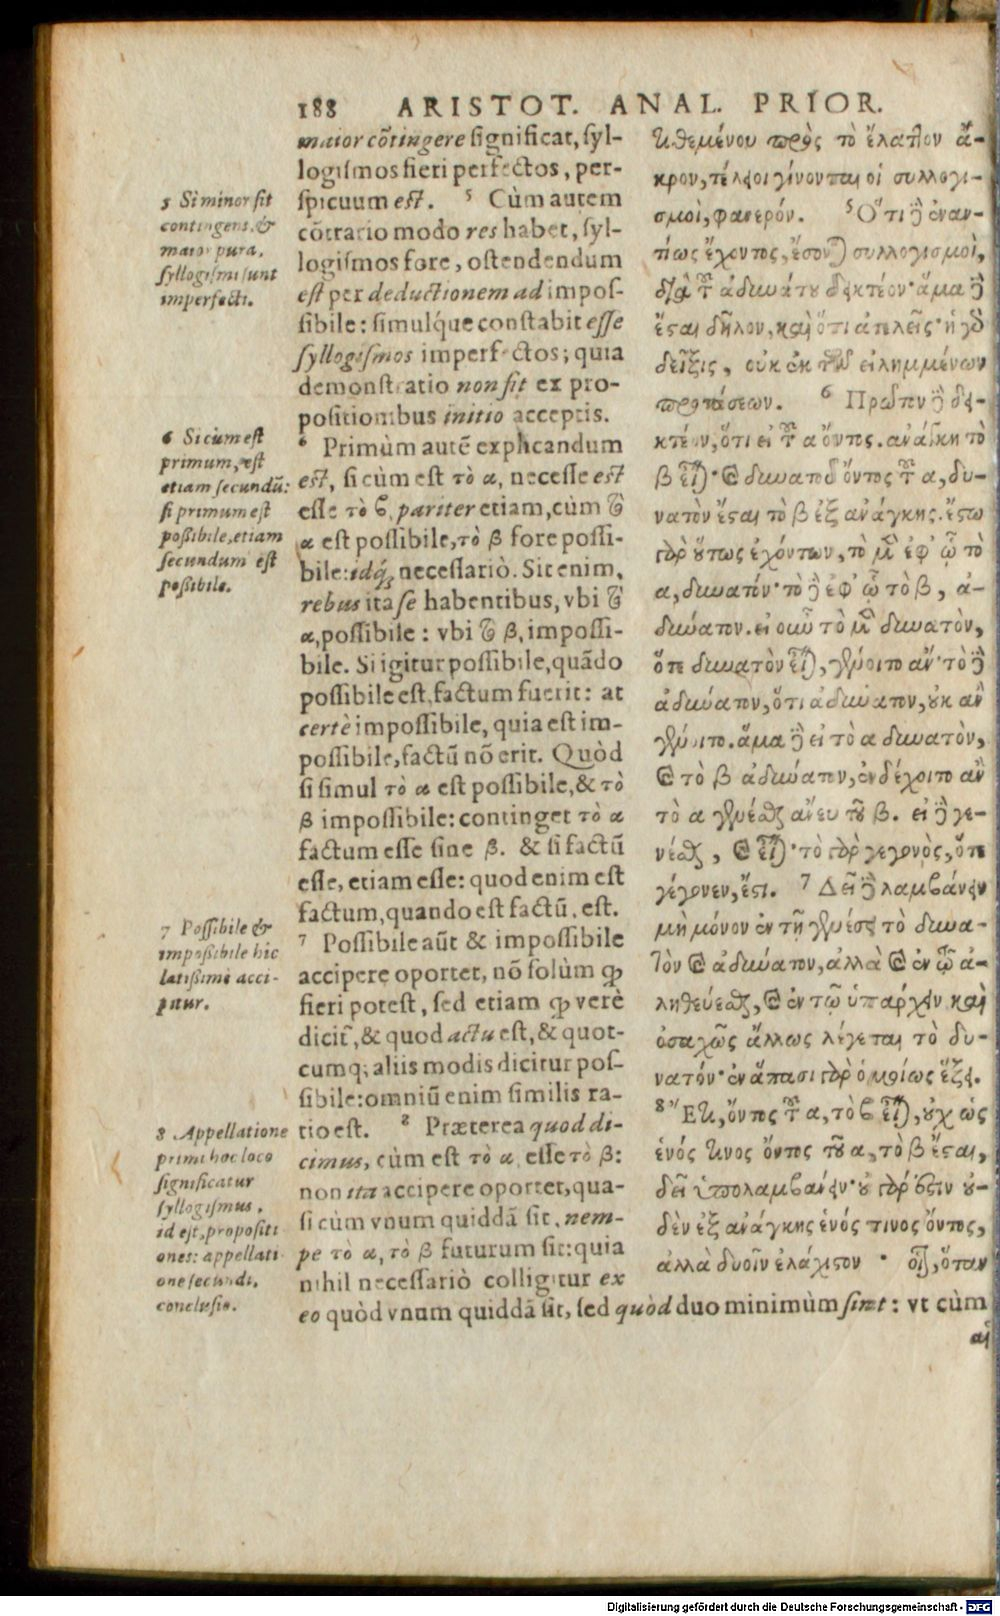 188 ARISTOT. ANAL. PRIOR.
5 Si minor sit
contingens, &
maior pura,
syllogismi sunt
imperfecti.
6 Si cùm est
primum, est
etiam secundũ:
si primum est
possibile, etiam
secundum est
possibile.
7 Possibile &
impossibile hic
latissimè acci-
pitur.
8 Appellatione
primi hoc loco
significatur
syllogismus,
id est, propositi
ones: appellati
one secundi,
conclusio.
maior cõtingere significat, syl-
logismos fieri perfectos, per-
spicuum est. 5 Cùm autem
cõtrario modo res habet, syl-
logismos fore, ostendendum
est per deductionem ad impos-
sibile: simulq́ue constabit esse
syllogismos imperfectos; quia
demonstratio non fit ex pro-
positionibus initio acceptis.
6 Primùm autẽ explicandum
est, si cùm est τὸ α, necesse est
esse τὸ ϐ, pariter etiam, cùm τὸ
α est possibile, τὸ β fore possi-
bile: idq́; necessariò. Sit enim,
rebus ita se habentibus, vbi τὸ
α, possibile: vbi τὸ β, impossi-
bile. Si igitur possibile, quãdo
possibile est, factum fuerit: at
certè impossibile, quia est im-
possibile, factũ nõ erit. Quòd
si simul τὸ α est possibile, & τὸ
β impossibile: continget τὸ α
factum esse sine β. & si factũ
esse, etiam esse: quod enim est
factum, quando est factũ, est.
7 Possibile aũt & impossibile
accipere oportet, nõ solùm ꝙ
fieri potest, sed etiam ꝙ verè
dicit̃, & quod actu est, & quot-
cumq; aliis modis dicitur pos-
sibile: omniũ enim similis ra-
tio est. 8 Præterea quod di-
cimus, cùm est τὸ α, esse τὸ β:
non ita accipere oportet, qua-
si cùm vnum quiddã sit, nem-
pe τὸ α, τὸ β futurum sit: quia
nihil necessariò colligitur ex
eo quòd vnum quiddã sit, sed quòd duo minimùm sint: vt cùm
τιθεμένου πρὸς τὸ ἔλατ̓ον ἄ-
κρον, τέλειοι γίνονται οἱ συλλογι-
σμοὶ, φανερόν. 5 Ὅτι δὲ ἐναν-
τίως ἔχοντος, ἔσονται συλλογισμοὶ,
διὰ τοῦ ἀδυνάτου δεικτέον· ἅμα δὲ
ἔσται δῆλον, καὶ ὅτι ἀτελεῖς· ἡ γὸ
δεῖξις, οὐκ ἐκ τῶν εἰλημμένων
προτάσεων. 6 Πρῶτον δὲ δει-
κτέον, ὅτι εἰ τοῦ α ὄντος, ἀνάγκη τὸ
β εἶναι· καὶ δυνατοῦ ὄντος τοῦ α, δυ-
νατὸν ἔσται τὸ β ἐξ ἀνάγκης. ἔστω
γὰρ οὕτως ἐχόντων, τὸ μὲν ἐφ’ ᾧ τὸ
α, δυνατόν· τὸ δὲ ἐφ’ ᾧ τὸ β, ἀ-
δυνάτον. εἰ οὖν τὸ μὲν δυνατὸν,
ὅτε δυνατὸν εἶναι, γένοιτο ἄν· τὸ δὲ
ἀδύνατον, ὅτι ἀδύνατον, οὐκ ἂν
γένοιτο. ἅμα δὲ εἰ τὸ α δυνατὸν,
καὶ τὸ β ἀδύνατον, ἐνδέχοιτο ἂν
τὸ α γενέσθαι ἄνευ τοῦ β. εἰ δὲ γε-
νέσθαι, καὶ εἶναι· τὸ γὰρ γεγονὸς, ὅτε
γέγονεν, ἔστι. 7 Δεῖ δὲ λαμβάνειν
μὴ μόνον ἐν τῇ γενέσει τὸ δυνα-
τὸν καὶ ἀδύνατον, ἀλλὰ καὶ ἐν τῷ ἀ-
ληθεύεσθαι, καὶ ἐν τῷ ὑπάρχειν καὶ
ὁσαχῶς ἄλλως λέγεται τὸ δυ-
νατόν· ἐν ἅπασι γὰρ ὁμοίως ἕξει.
8 Ἔτι, ὄντος τοῦ α, τὸ ϐ εἶναι, οὐχ ὡς
ἑνός τινος ὄντος τοῦ α, τὸ β ἔσται,
δεῖ ὑπολαμβάνειν· οὐ γάρ ἐστιν οὐ-
δὲν ἐξ ἀνάγκης ἑνός τινος ὄντος,
ἀλλὰ δυοῖν ἐλάχιστον · οἷον, ὅταν
αἱ
Digitalisierung gefördert durch die Deutsche Forschungsgemeinschaft - DFG